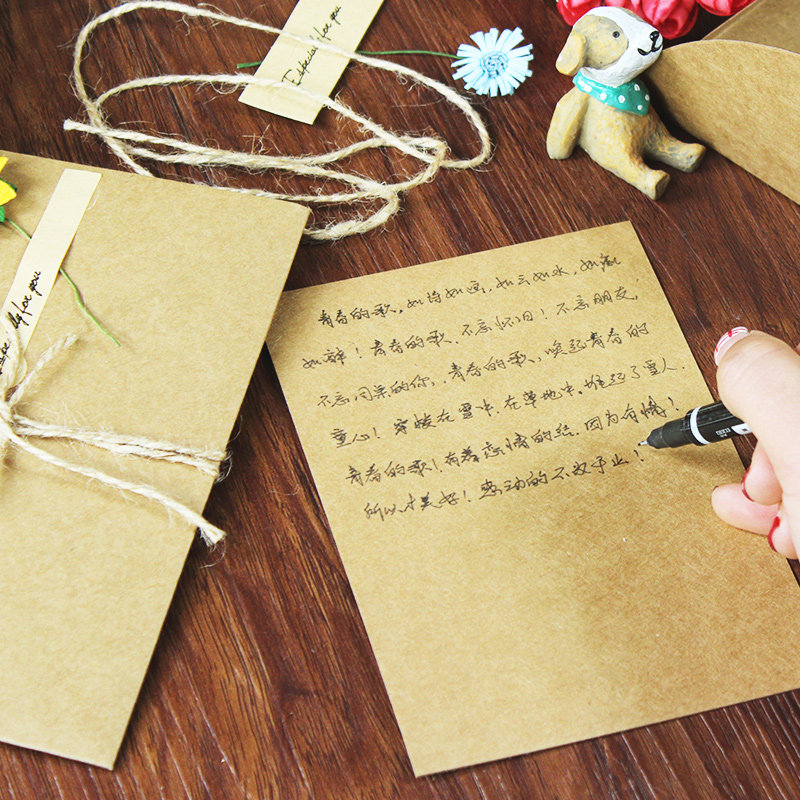 Especially for you
ly for you
青春的歌，如诗如画，如云如水，如痴
如醉！青春的歌、不忘怀旧！不忘朋友，
不忘同桌的你，青春的歌，唤起青春的
童心！穿梭在雪中，在草地中，堆起了雪人，
青春的歌！有着感情的结，因为有情！
所以才美好！感动的不敢于止！